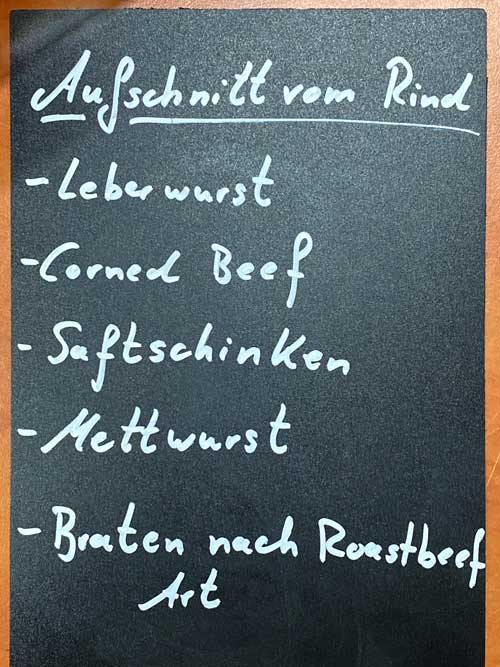 Aufschnitt vom Rind
- Leberwurst
- Corned Beef
- Saftschinken
- Mettwurst
- Braten nach Roastbeef
Art